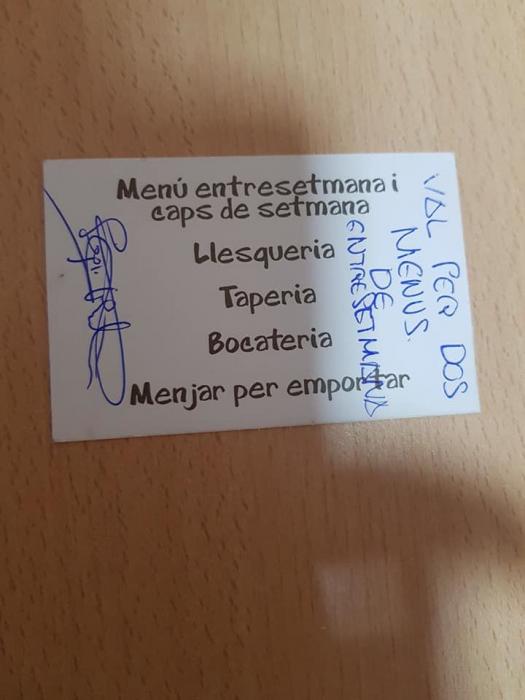 Menú entresetmana i
caps de setmana
Llesqueria
Taperia
Bocateria
Menjar per emportar
VAL PER DOS
MENUS.
DE
ENTRESETMANA